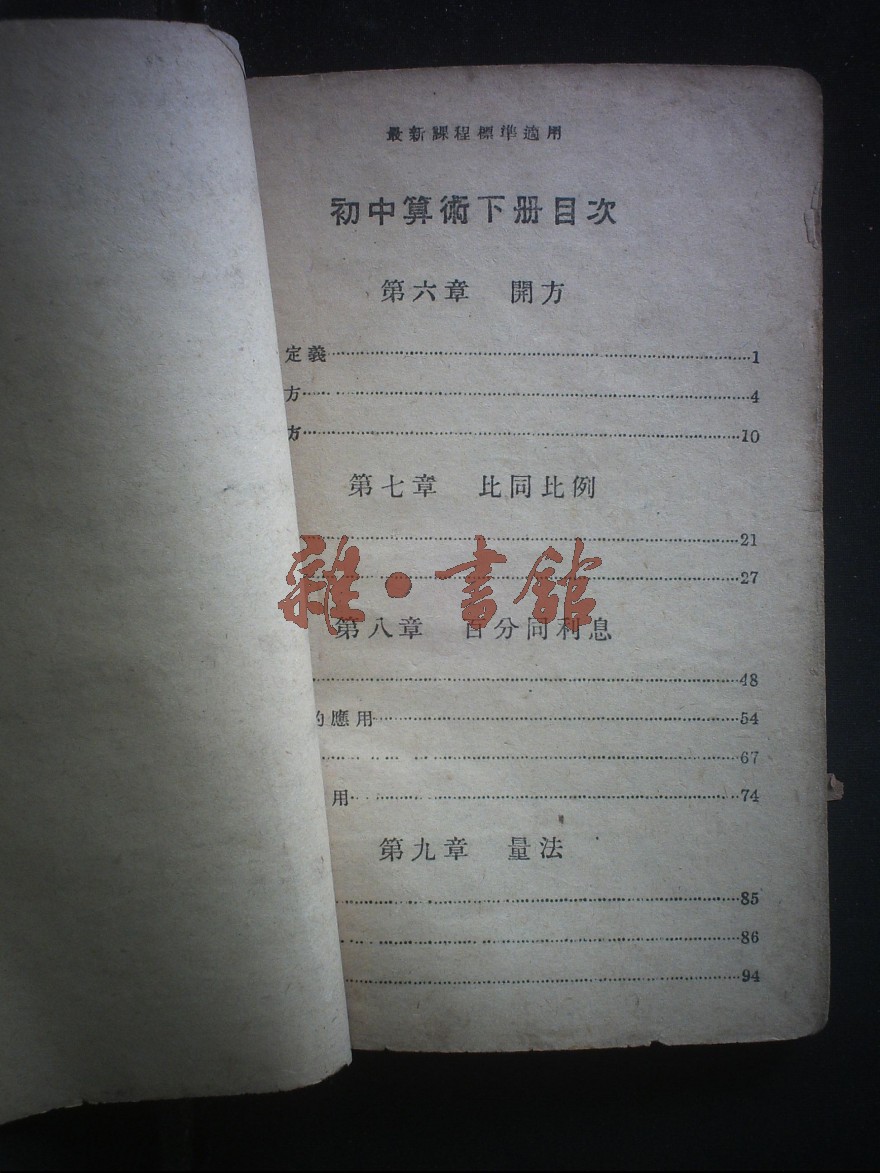 最新課程標準適用
初中算術下册目次
第六章 開方
定義……1
方……4
方……10
第七章 比同比例
……21
……27
雜·書館
第八章 百分同利息
……48
的應用……54
……67
用……74
第九章 量法
……85
……86
……94